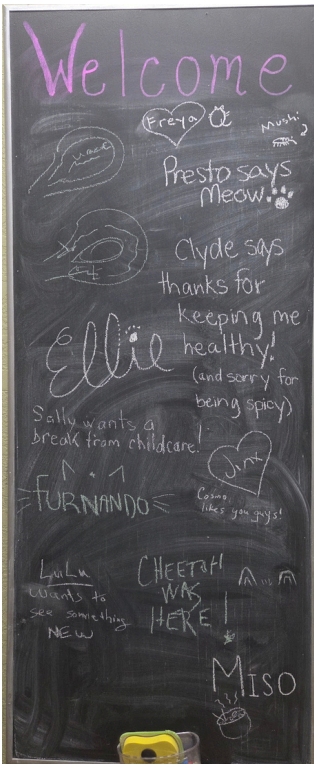 Welcome
Freya
Mushi
Presto says
Meow!
Clyde says
thanks for
keeping me
healthy!
(and sorry for
being spicy)
Ellie
Sally wants a
break from childcare!
Jinx
Cosmo
likes you guys!
FURNANDO
LuLu
wants to
see something
NEW
CHEETAH
WAS
HERE!
MISO